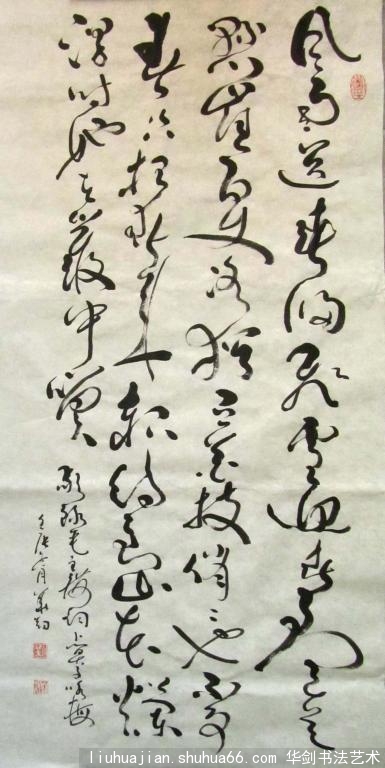 风雨送春归飞雪迎春到已是
悬崖百丈冰犹有花枝俏々也不争
春只把春来报待到山花烂
漫时她在丛中笑
敬録毛主席词卜算子咏梅
壬辰 月华剑
liuhuajian.shuhua66.com 华剑书法艺术